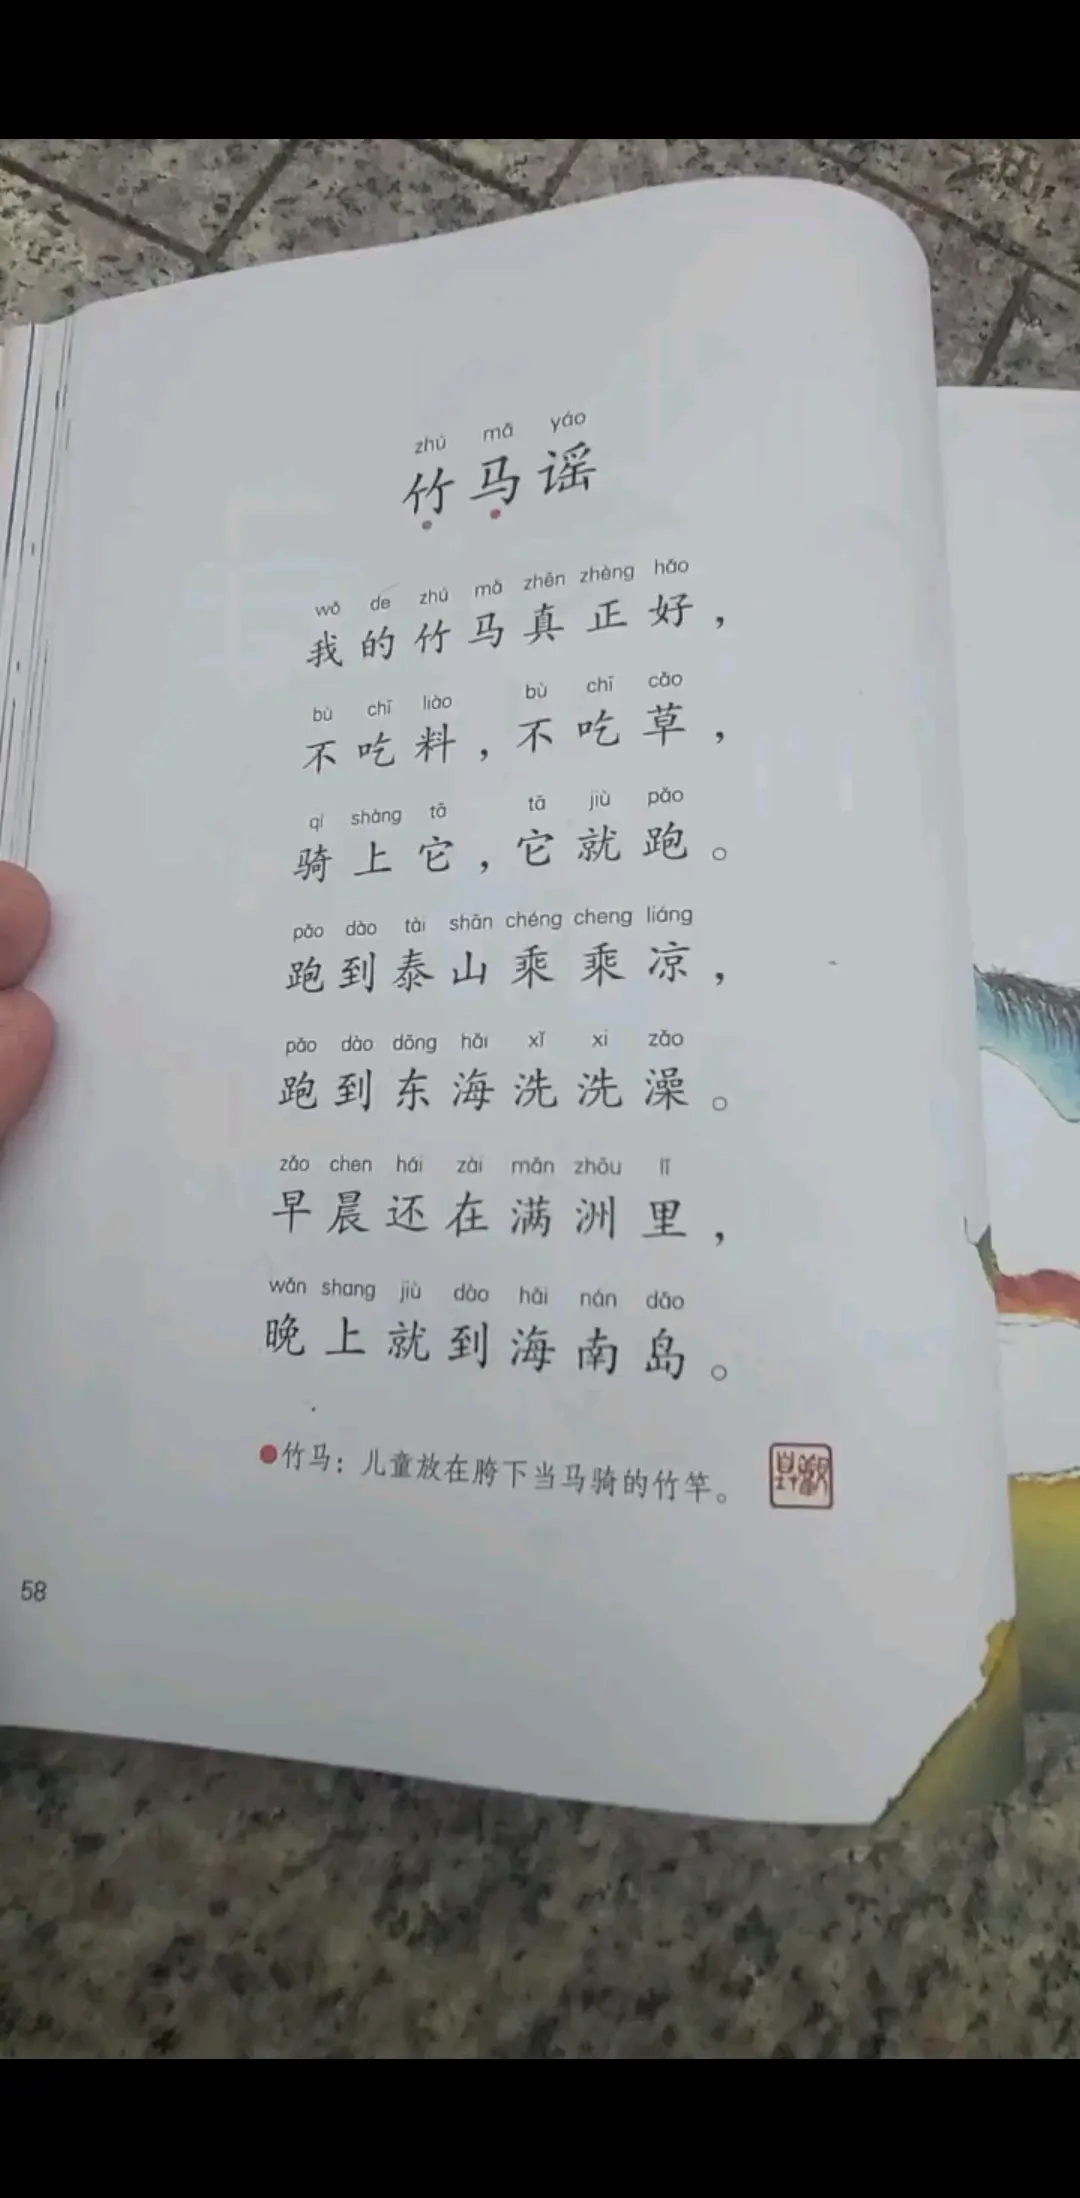 zhú mǎ yáo
竹马谣
wǒ de zhú mǎ zhēn zhèng hǎo
我的竹马真正好，
bù chī liào bù chī cǎo
不吃料，不吃草，
qí shàng tā tā jiù pǎo
骑上它，它就跑。
pǎo dào tài shān chéng cheng liáng
跑到泰山乘乘凉，
pǎo dào dōng hǎi xǐ xi zǎo
跑到东海洗洗澡。
zǎo chen hái zài mǎn zhōu lǐ
早晨还在满洲里，
wǎn shang jiù dào hǎi nán dǎo
晚上就到海南岛。
●竹马：儿童放在胯下当马骑的竹竿。
58